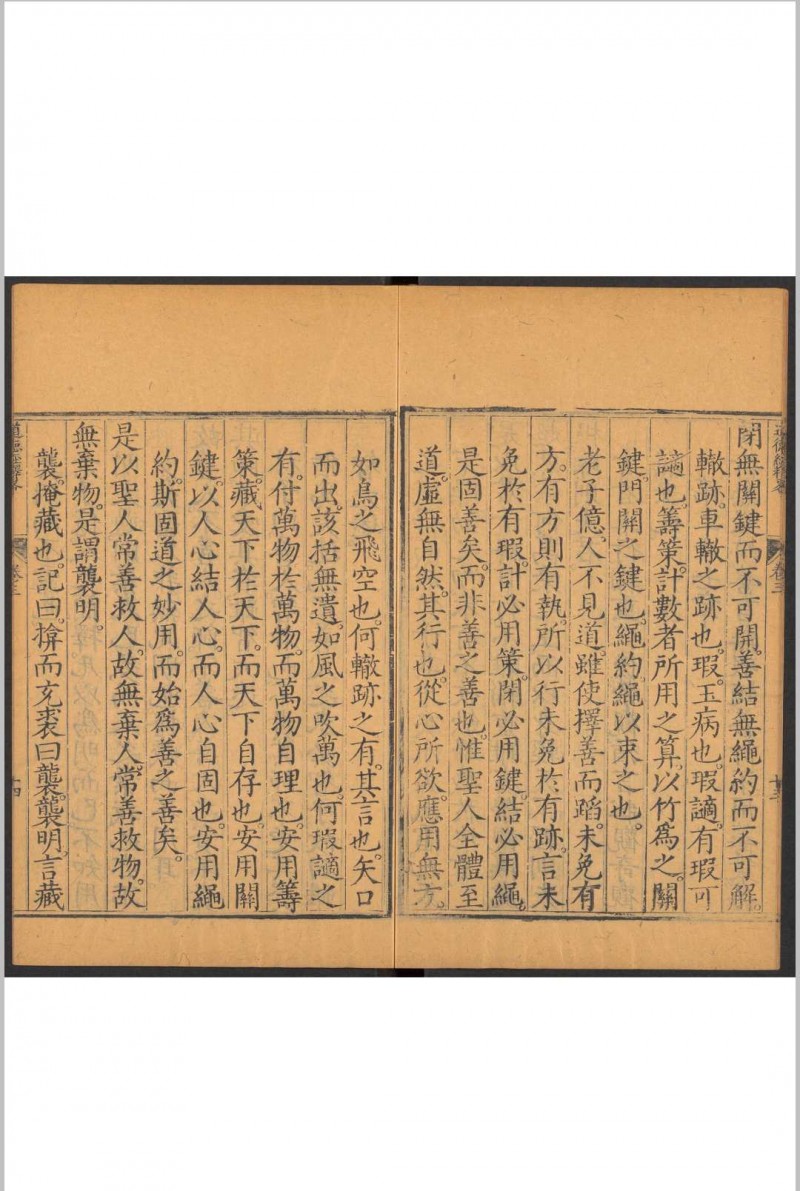 閉無關鍵而不可開。善結無繩約而不可解。
轍跡。車轍之跡也。瑕。玉病也。瑕讁。有瑕可
讁也。籌策。計數者所用之算。以竹爲之。關
鍵。門關之鍵也。繩約。繩以束之也。
老子億。人不見道。雖使擇善而蹈。未免有
方。有方則有執。所以行未免於有跡。言未
免於有瑕。計必用策。閉必用鍵。結必用繩。
是固善矣。而非善之善也。惟聖人全體至
道。虛無自然。其行也。從心所欲。應用無方。
如鳥之飛空也。何轍跡之有。其言也。矢口
而出。該括無遺。如風之吹萬也。何瑕讁之
有。付萬物於萬物。而萬物自理也。安用籌
策。藏天下於天下。而天下自存也。安用關
鍵。以人心結人心。而人心自固也。安用繩
約。斯固道之妙用。而始爲善之善矣。
是以聖人常善救人。故無棄人。常善救物。故
無棄物。是謂襲明。
襲。掩藏也。記曰。揜而充裘曰襲。襲明。言藏
卷三
十四